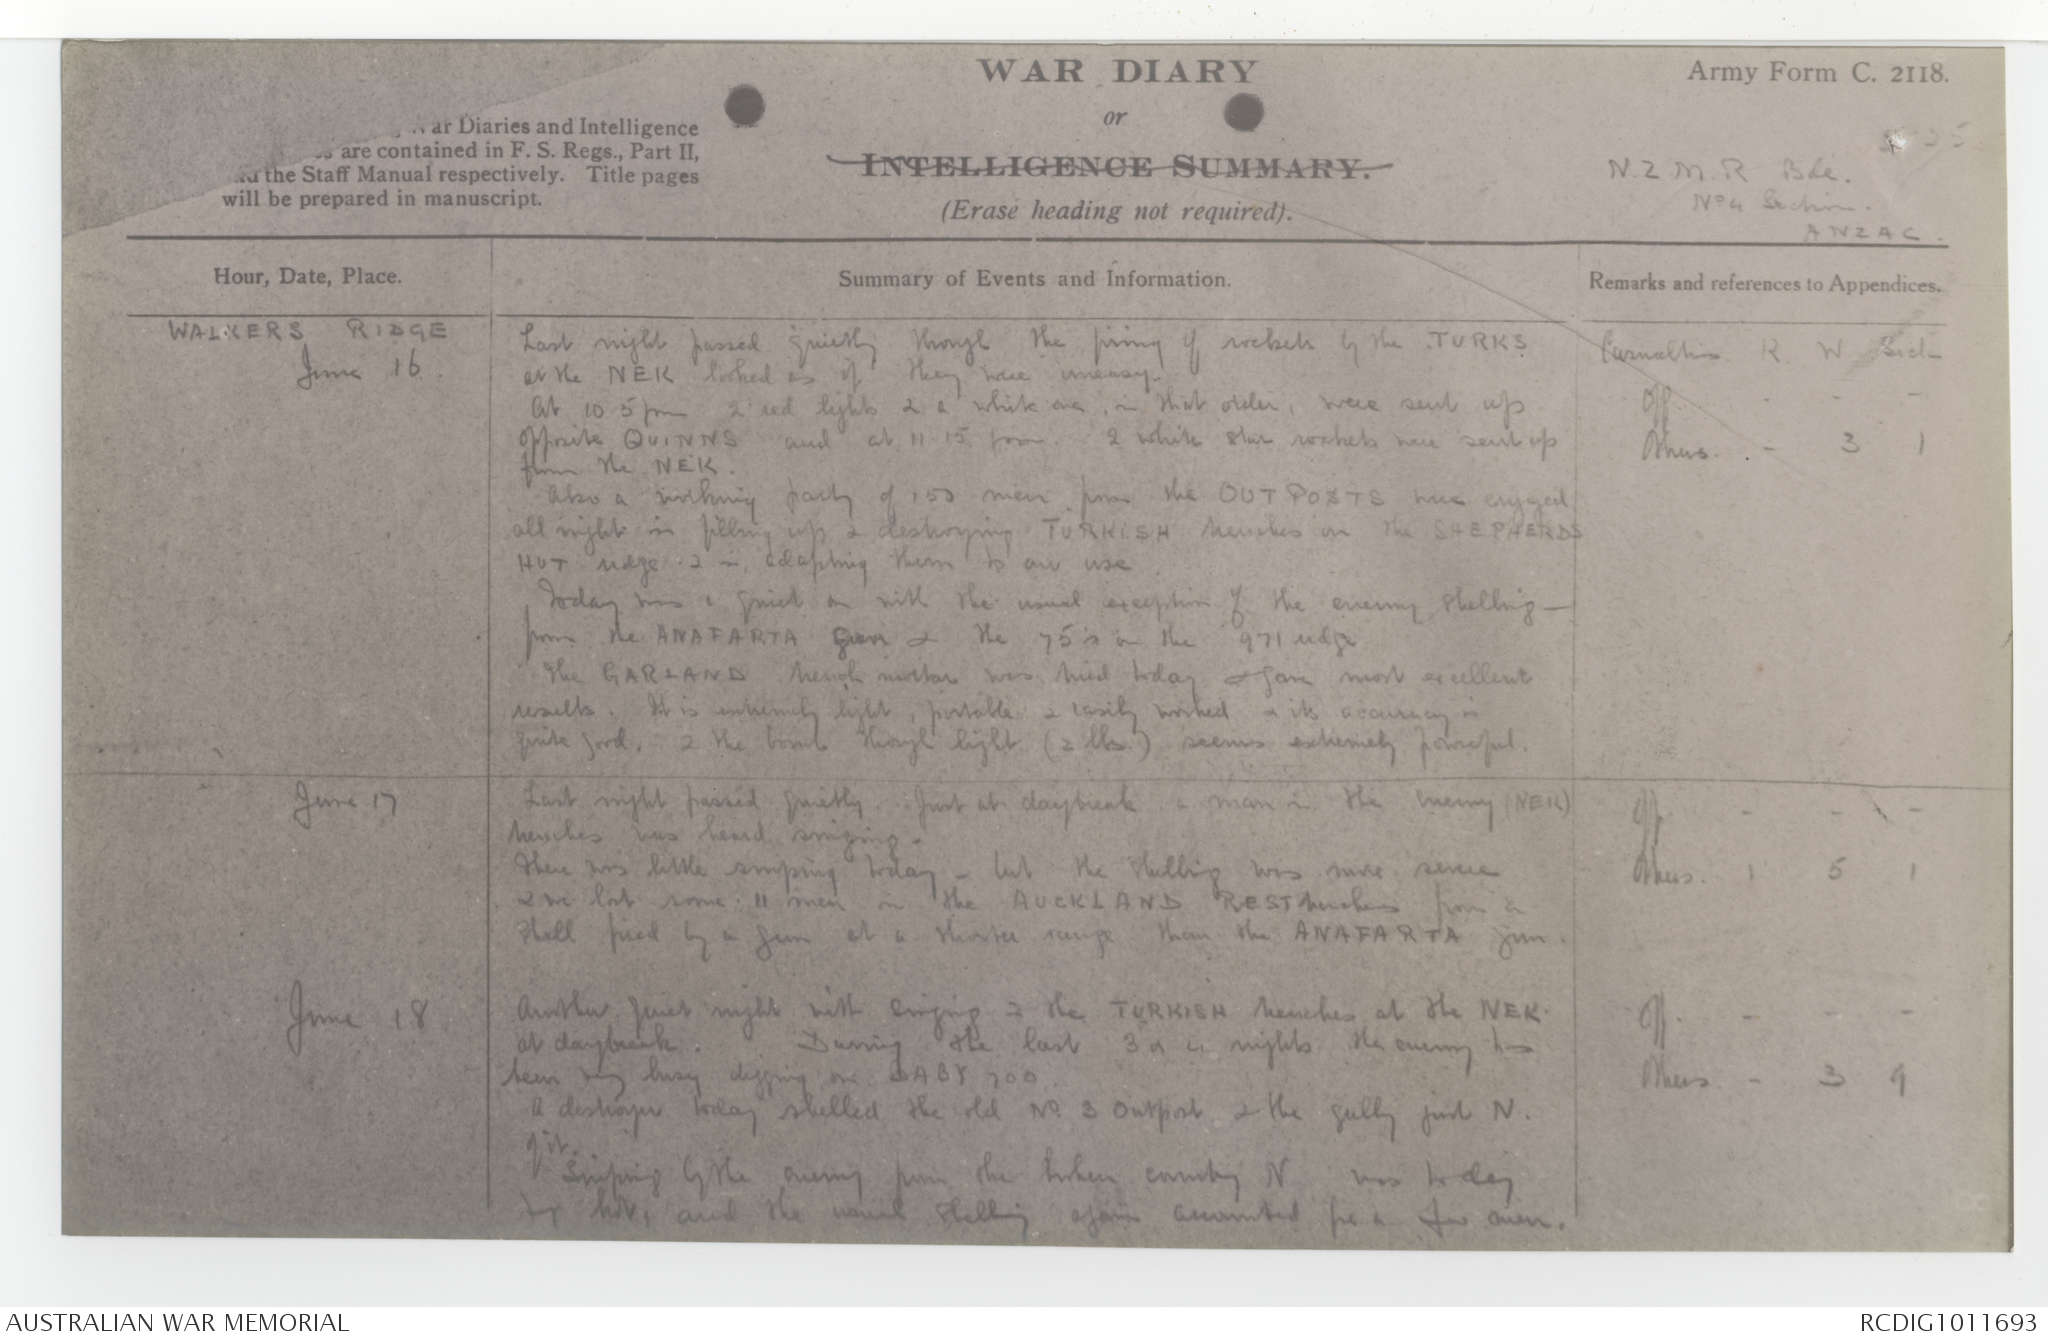 WAR DIARY
or
INTELLIGENCE SUMMARY.
(Erase heading not required).
Army Form C. 2118.
War Diaries and Intelligence
are contained in F. S. Regs., Part II,
and the Staff Manual respectively. Title pages
will be prepared in manuscript.
N Z M. R Bde.
No 4 Section.
ANZAC.
Hour, Date, Place.
Summary of Events and Information.
Remarks and references to Appendices.
WALKERS RIDGE
June 16.
Last night passed quietly though the firing of rockets by the TURKS
at the NEK looked as if they were uneasy.
At 10 5 pm 2 red lights & a white one, in that order, were sent up
opposite QUINNS and at 11.15 pm. 2 white star rockets were sent up
from the NEK.
Also a working party of 150 men from the OUTPOSTS were engaged
all night in filling up & destroying TURKISH trenches on the SHEPHERDS
HUT ridge & in adapting them to our use.
Today was a quiet one with the usual exception of the enemy shelling
from the ANAFARTA gun & the 75's on the 971 ridge
The GARLAND trench mortar was tried today & gave most excellent
results. It is extremely light, portable & easily worked & its accuracy is
quite good, & the bomb though light (2 lbs.) seems extremely powerful.
Casualties K W Sick
Off. - - -
Others. - 3 1
June 17
Last night passed quietly. Just at daybreak a man in the enemy (NEK)
trenches was heard singing.
There was little sniping today - but the shelling was more severe
& we lost some 11 men in the AUCKLAND REST trenches from a
shell fired by a gun at a shorter range than the ANAFARTA gun.
Off - - -
Others. 1 5 1
June 18
Another quiet night with singing in the TURKISH trenches at the NEK.
at daybreak. During the last 3 or 4 nights the enemy has
been very busy digging on BABY 700.
A destroyer today shelled the old No. 3 Outpost & the gully just N.
of it.
Sniping by the enemy from the broken country N was today
hot, and the usual shelling again accounted for a few men.
Off. - - -
Others - 3 9
AUSTRALIAN WAR MEMORIAL
RCDIG1011693